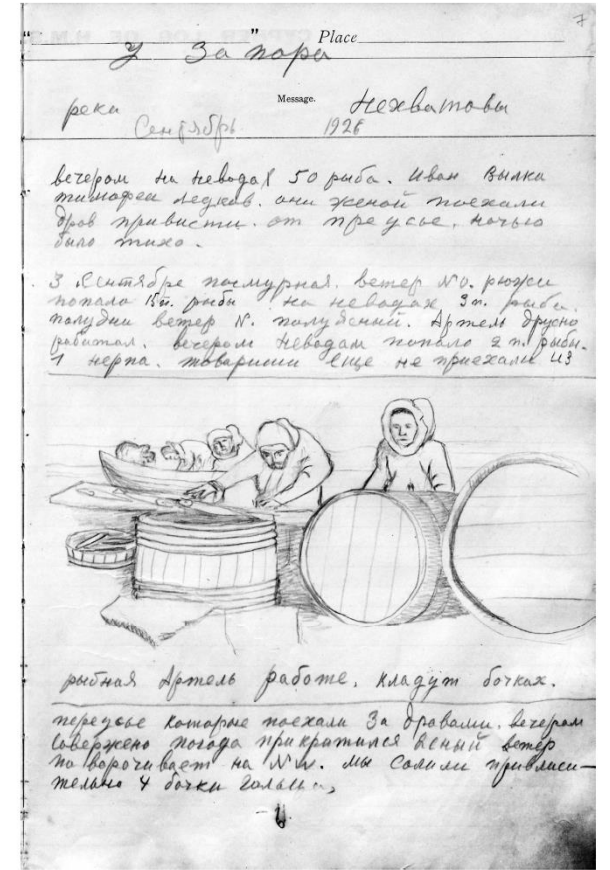 7
" " Place
У Запора
Message.
река Нехватовы
Сентябрь 1926
вечером на неводах 50 рыба. Иван Вылка
тимофеи Ледков. они женой поехали
дров привисти. от преусье. ночью
было тихо.
3 Сентябре пасмурная. ветер NO. рюжи
попало 15п. рыбы на неводах 3п. рыба.
полудни ветер N. полуясний. Артель друсно
работал. вечером неводам попало 2 п. рыбы.
1 нерпа. товариши еще не приехали из
рыбная Артель работе. кладут бочках.
переусье которые поехали За дравами. вечером
Совержено погода прикратился ясный ветер
по ворочивает на NW. мы Солили привлиси-
тельно 4 бочки